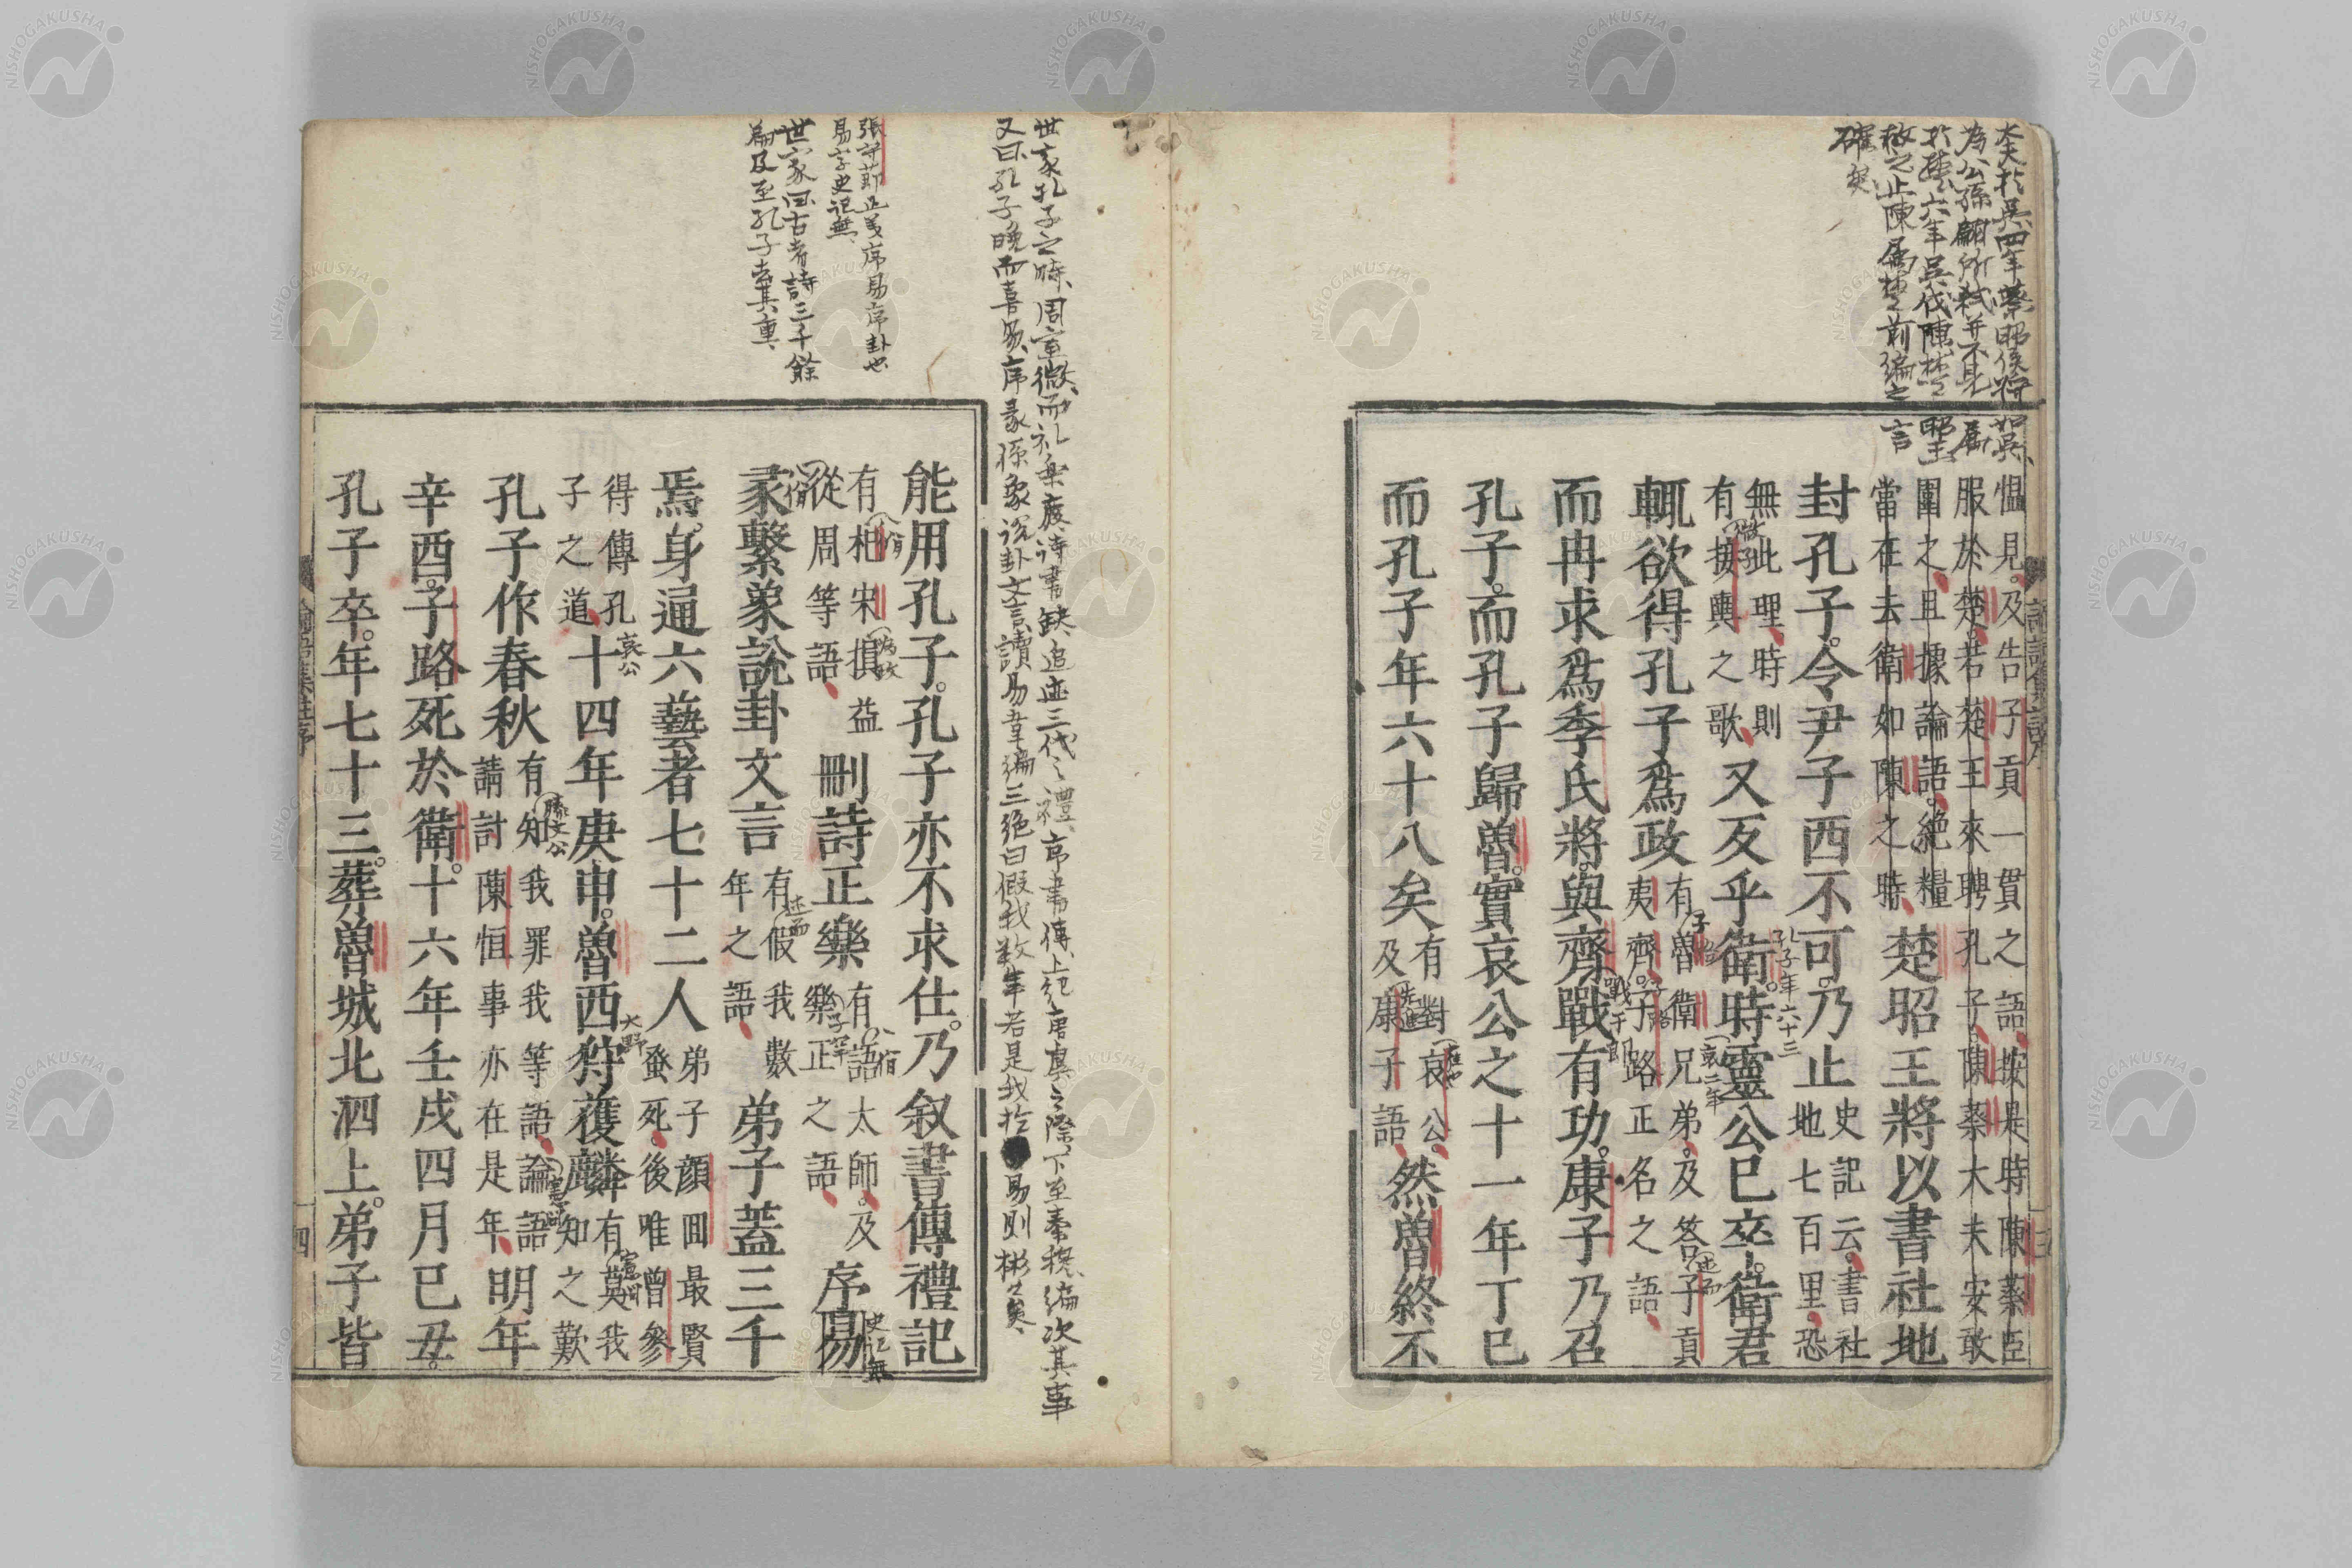 為公孫翩所弒并不見屬
於楚六年吳伐陳楚昭王
救之止陳屬楚前編之言
確矣
論語集註序
慍見。及告子貢一貫之語、按是時陳蔡臣
服於楚。若楚王來聘孔子。陳蔡大夫安敢
圍之、且據論語。絶糧
當在去衛如陳之時、
楚昭王將以書社地
封孔子。令尹子西不可。乃止
史記云。書社
地七百里。恐
無此理、時則
有接輿之歌、
微子
又反乎衛。時靈公已卒。衛君
孔子年六十三
哀二年
輒欲得孔子爲政
有魯衛兄弟。及答子貢
夷齊。子路正名之語、
子路
述而
而冉求爲季氏將。與齊戰有功。康子乃召
戰于郎
孔子。而孔子歸魯。實哀公之十一年丁巳
而孔子年六十八矣
有對哀公。
及康子語、
先進
然魯終不
世家孔子之時、周室微、而礼樂廢詩書缺、追迹三代之禮、序書傳、上紀唐虞之際、下至秦穆、編次其事
又曰孔子晚而喜易、序彖係象說卦文言讀易韋編三絶曰假我数年若是我於易則彬々矣、
張守莭正義序易序卦也
易字史記無、
世家曰古者詩三千餘
篇及至孔子去其重、
能用孔子。孔子亦不求仕。乃叙書傳禮記
有杞宋損益
從周等語、
八佾
爲政
刪詩正樂
有語太師。及
樂正之語、
八佾
子罕
序易
史記無
彖繫象說卦文言
有假我數
年之語、
述而
弟子蓋三千
焉。身通六藝者七十二人
弟子顔回最賢
蚤死、後唯曾參
得傳孔
子之道、
十四年庚申。魯西狩獲麟
哀公
大野
有莫我
知之歎
憲問
孔子作春秋
有知我罪我等語、論語
請討陳恒事亦在是年、
滕文公
憲問
明年
辛酉。子路死於衛。十六年壬戌四月已丑。
孔子卒。年七十三。葬魯城北泗上。弟子皆
論語集註序
四